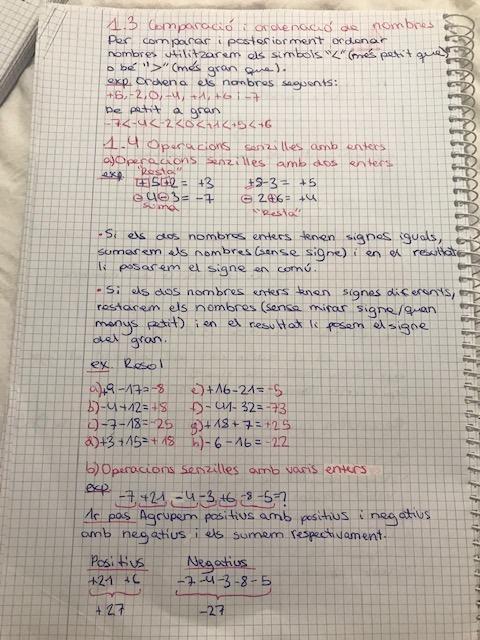 1.3 Comparació i ordenació de nombres
Per comparar i posteriorment ordenar
nombres utilitzarem els símbols "<" (més petit que)
o bé ">" (més gran que).
exp. Ordena els nombres següents:
+5, -2, 0, -4, +1, +6 i -7
De petit a gran
-7<-4<-2<0<+1<+5<+6
1.4 Operacions senzilles amb enters
a) Operacions senzilles amb dos enters
exp. "Resta"
+5+2= +3 +8-3= +5
-4-3= -7 -2+6= +4
suma "Resta"
• Si els dos nombres enters tenen signes iguals,
sumarem els nombres (sense signe) i en el resultat
li posarem el signe en comú.
• Si els dos nombres enters tenen signes diferents,
restarem els nombres (sense mirar signe/quan
menys petit) i en el resultat li posem el signe
del gran.
ex. Resol
a) +9-17=-8 e) +16-21=-5
b) -4+12=+8 f) -41-32=-73
c) -7-18=-25 g) +18+7=+25
d) +3+15=+18 h) -6-16=-22
b) Operacions senzilles amb varis enters
exp
-7+21-4-3+6-8-5=?
1r pas Agrupem positius amb positius i negatius
amb negatius i els sumem respectivament.
Positius Negatius
+21 +6 -7-4-3-8-5
+27 -27